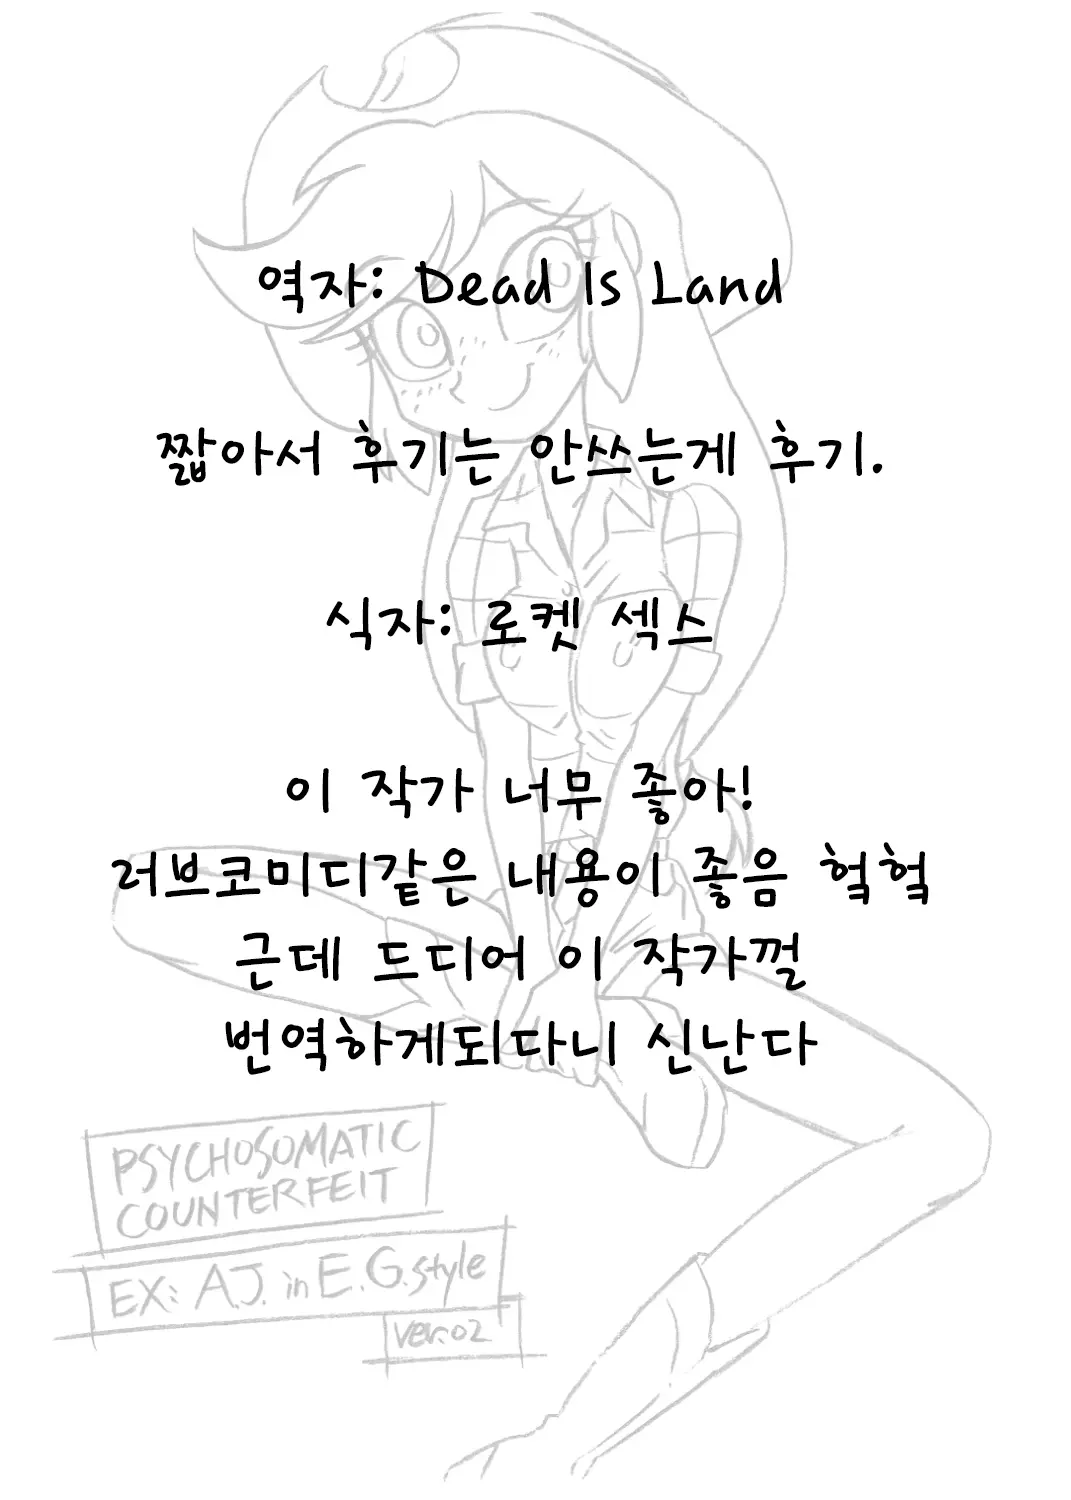 역자: Dead Is Land
짧아서 후기는 안쓰는게 후기.
식자: 로켓 섹스
이 작가 너무 좋아!
러브코미디같은 내용이 좋음 헠헠
근데 드디어 이 작가껄
번역하게되다니 신난다
PSYCHOSOMATIC
COUNTERFEIT
EX: A.J. in E.G. style
ver.02